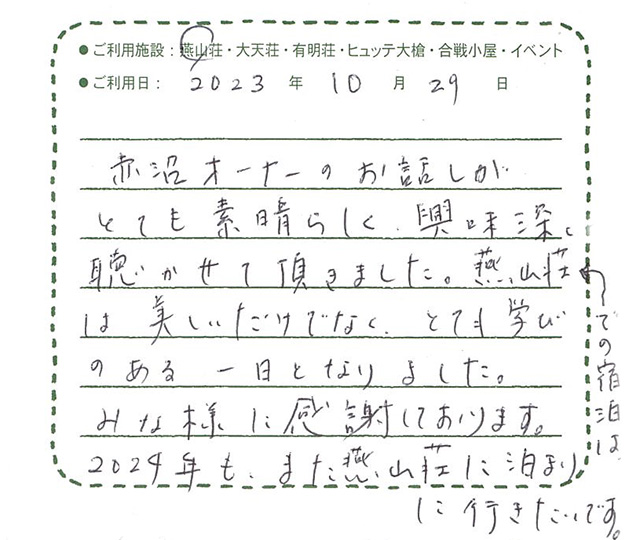 ●ご利用施設：燕山荘・大天荘・有明荘・ヒュッテ大槍・合戦小屋・イベント
●ご利用日： 2023 年 10 月 29 日
赤沼オーナーのお話しが
とても素晴らしく、興味深く
聴かせて頂きました。燕山荘
での宿泊は
は美しいだけでなく、とても学び
のある一日となりました。
みな様に感謝しております。
2024年も、また燕山荘に泊まり
に行きたいです。